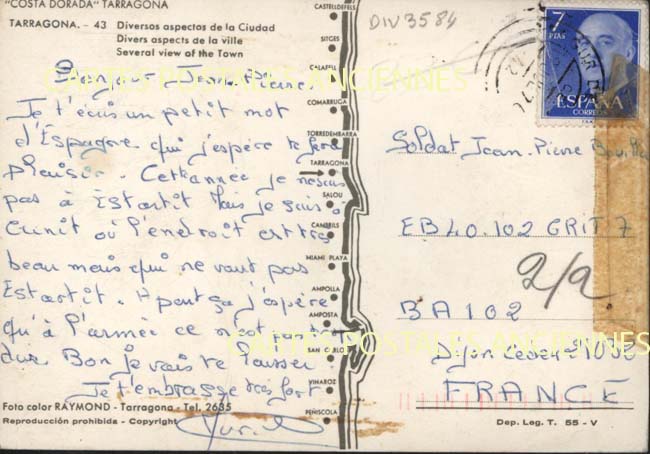 "COSTA DORADA" TARRAGONA
TARRAGONA. - 43 Diversos aspectos de la Ciudad
Divers aspects de la ville
Several view of the Town
DIV3584
CARTES POSTALES ANCIENNES
Bonjour Jean Pierre
Je t'écris un petit mot
d'Espagne qui j'espère te fera
plaisir. Cette année je ne suis
pas à Estartit mais je suis à
où l'endroit est très
beau mais qui ne vaut pas
Estartit. A part ça j'espère
qu'à l'armée ce n'est pas
dur Bon je vais te laisser
Je t'embrasse très fort
CASTELLDEFELS
SITGES
CALAFELL
COMARRUGA
TORREDEMBARRA
TARRAGONA
SALOU
CAMBRILS
MIAMI PLAYA
AMPOLLA
AMPOSTA
SAN CARLOS
VINAROZ
PEÑISCOLA
7
PTAS
ESPAÑA
CORREOS
Soldat Jean-Pierre
EB 40.102 GRIT 7
2/2
BA 102
CARTES POSTALES ANCIENNES
Dijon cedex 21000
FRANCE
Foto color RAYMOND - Tarragona - Tel. 2635
Reproducción prohibida - Copyright
Dep. Leg. T. 55 - V